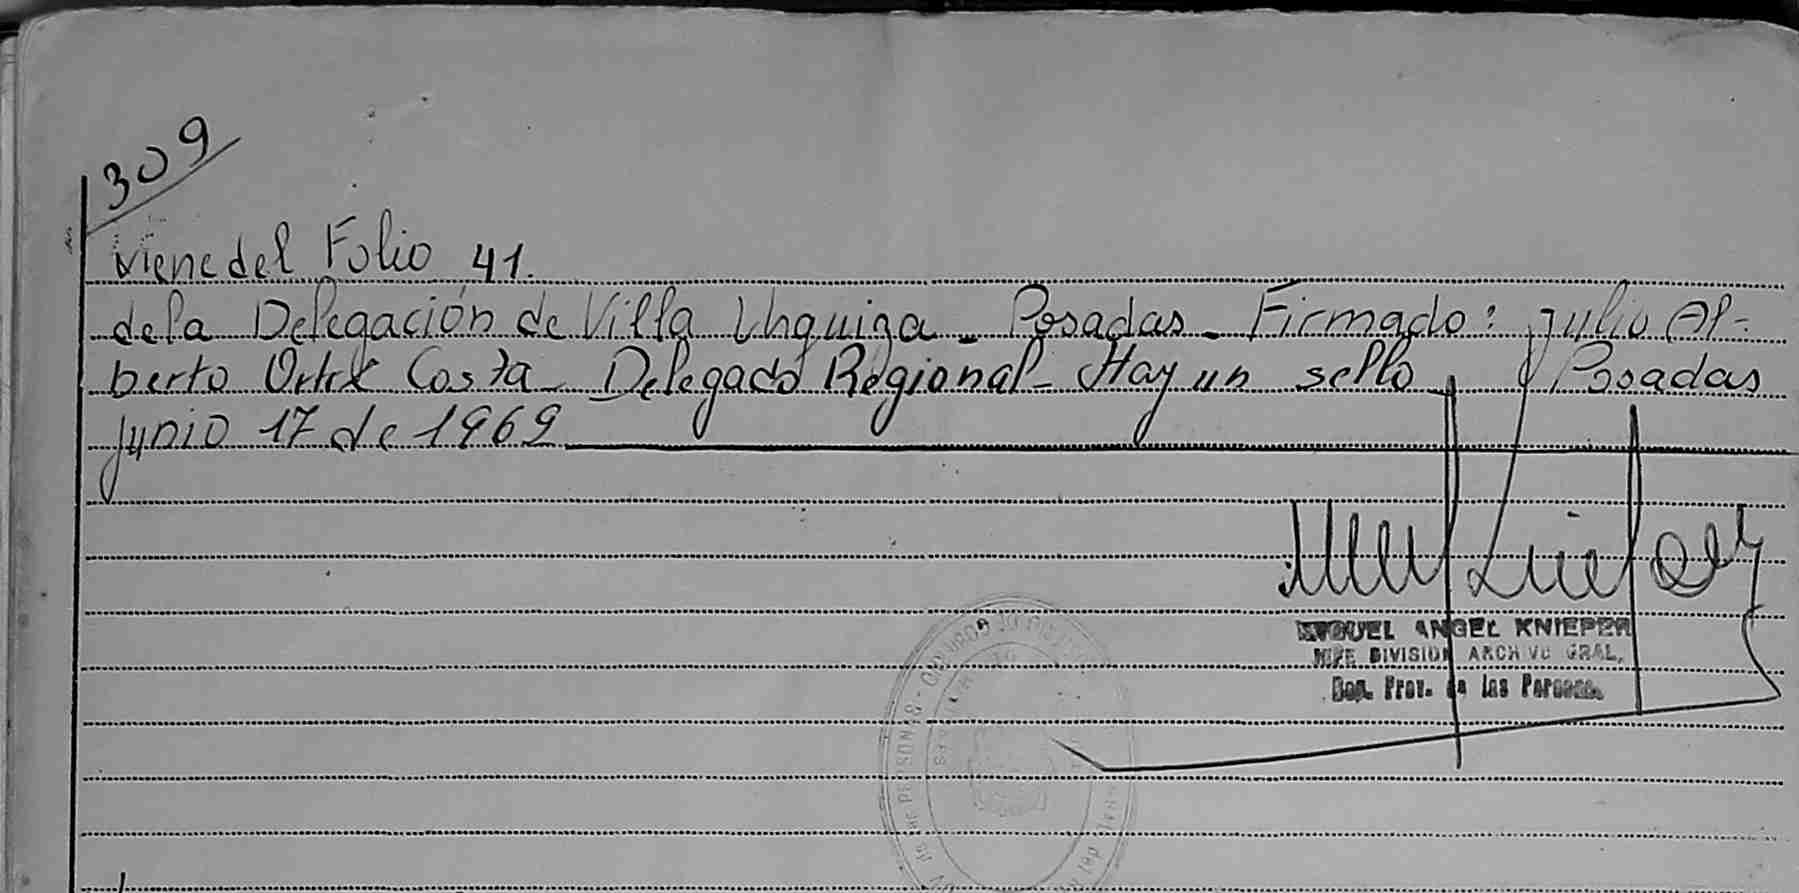 309
Viene del Folio 41.
de la Delegación de Villa Urquiza - Posadas - Firmado: Julio Al-
berto Ortiz Costa - Delegado Regional - Hay un sello Posadas
junio 17 de 1969
MIGUEL ANGEL KNIEPER
JEFE DIVISION ARCHIVO GRAL.
Reg. Prov. de las Personas